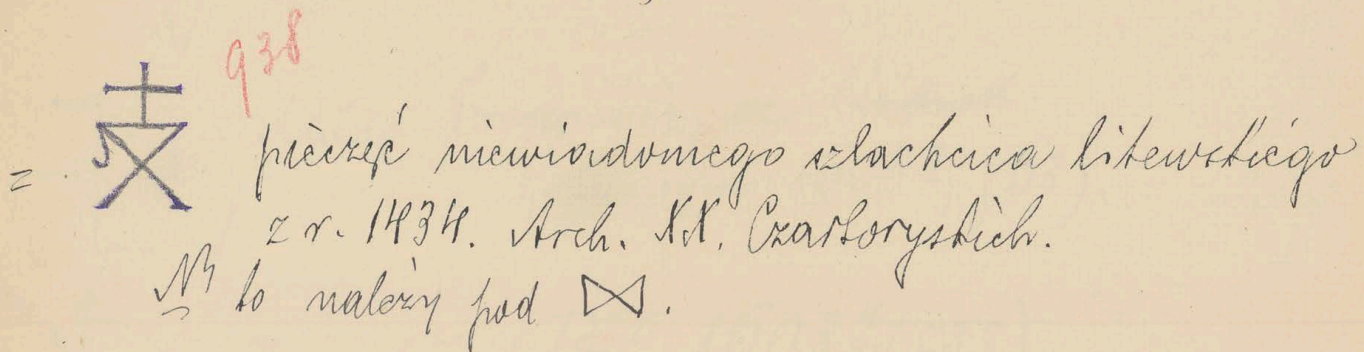 938
= pieczęć niewiadomego szlachcica litewskiego
z r. 1434. Arch. XX. Czartoryskich.
NB to należy pod ⋈.